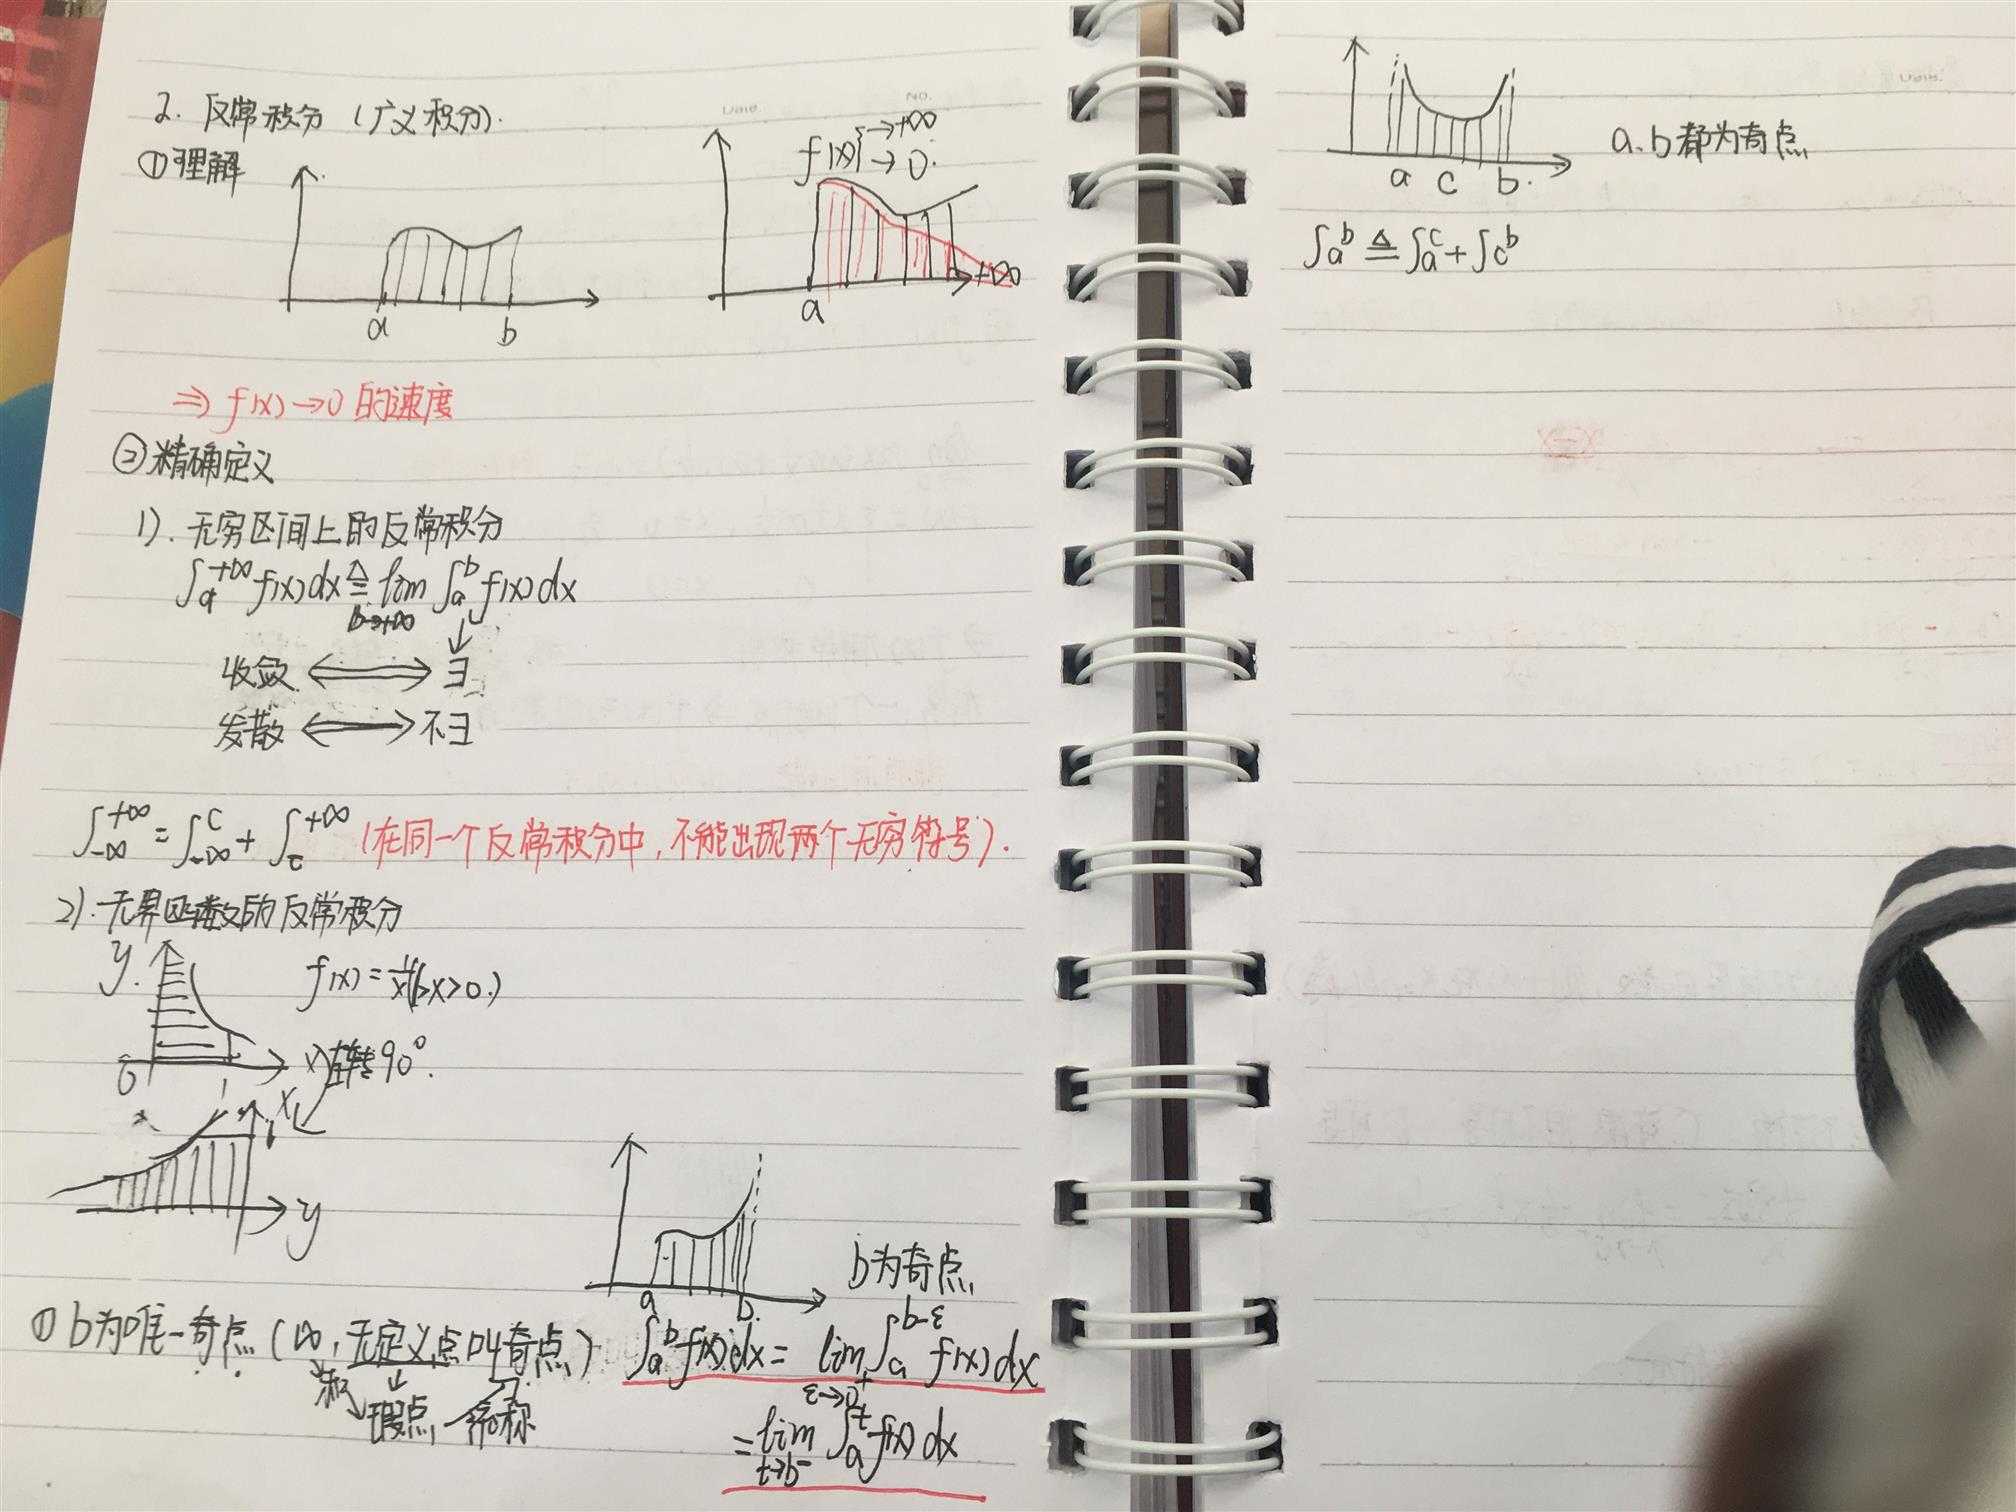 2. 反常积分（广义积分).
①理解
f(x) →+∞
→0.
a b
a +∞
⇒ f(x)→0 的速度
②精确定义
1). 无穷区间上的反常积分
∫a^+∞ f(x)dx ≜ lim b→+∞ ∫a^b f(x)dx
收敛 ⟺ ∃
发散 ⟺ 不∃
∫-∞^+∞ = ∫-∞^c + ∫c^+∞ (在同一个反常积分中，不能出现两个无穷符号).
2). 无界函数的反常积分
y f(x)=1/x (x>0)
0 1 x 转90°.
x
1
y
a b.
b为奇点
①b为唯一奇点（∞，无定义点叫奇点）
瑕点 统称
∫a^b f(x)dx = lim ε→0+ ∫a^b-ε f(x)dx
= lim t→b- ∫a^t f(x)dx
a c b.
a.b都为奇点
∫a^b ≜ ∫a^c + ∫c^b
Date.
NO.
Date.